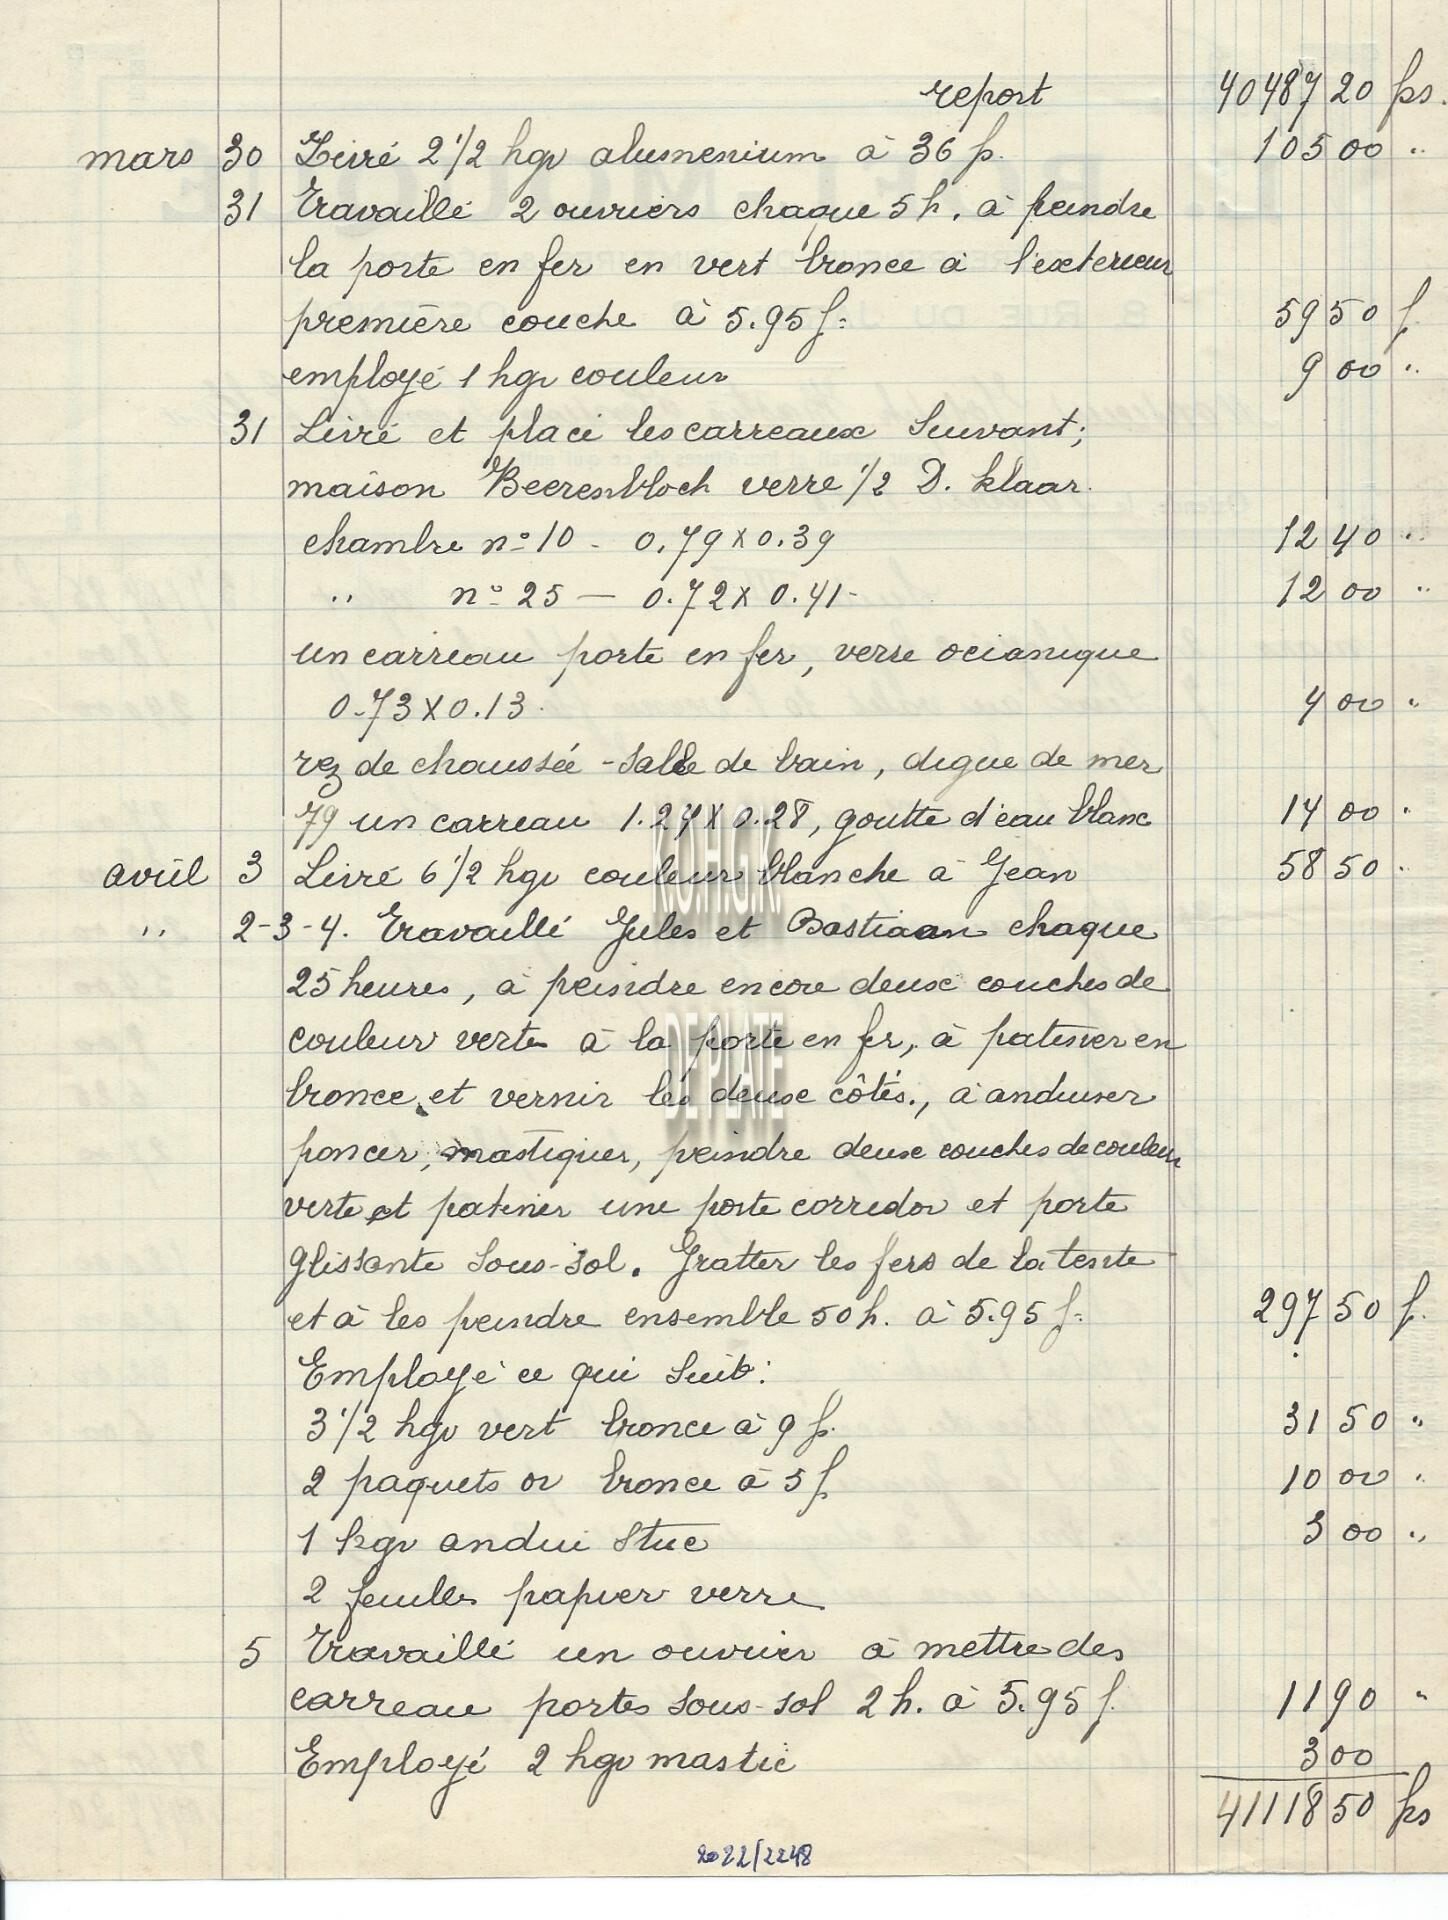 report 40487 20 frs.
mars 30 Livré 2 1/2 kgr alumenium à 36 f. 105 00 "
31 Travaillé 2 ouvriers chaque 5 h. à peindre
la porte en fer en vert bronce à l'exterieur
première couche à 5.95 f. 59 50 f
employé 1 kgr couleur 9 00 "
31 Livré et placé les carreaux Suivant;
maison Beerenbloch verre 1/2 D. klaar.
chambre n° 10 - 0.79 X 0.39 12 40 "
" n° 25 — 0.72 X 0.41 - 12 00 "
un carreau porte en fer, verre océanique
0.73 X 0.13. 4 00 "
rez de chaussée - Salle de bain, digue de mer
79 un carreau 1.24 X 0.28, goutte d'eau blanc 14 00 "
avril 3 Livré 6 1/2 kgr couleur blanche à Jean 58 50 "
" 2-3-4. Travaillé Jules et Bastiaan chaque
25 heures, à peindre encore deuxe couches de
couleur verte à la porte en fer, à patiner en
bronce, et vernir les deuxe côtés., à anduiser
poncer, mastiquer, peindre deuxe couches de couleur
verte et patiner une porte corredor et porte
glissante Sous-Sol. Gratter les fers de la tente
et à les peindre ensemble 50 h. à 5.95 f. 297 50 f.
Employé ce qui Suit:
3 1/2 kgr vert bronce à 9 f. 31 50 "
2 paquets or bronce à 5 f. 10 00 "
1 kgr andui Stuc 3 00 "
2 feuilles papier verre
5 Travaillé un ouvrier à mettre des
carreau portes Sous-Sol 2 h. à 5.95 f. 11 90 "
Employé 2 kgr mastic 3 00
41118 50 frs
2022/2248
K.O.H.G.K.
DE PLATE